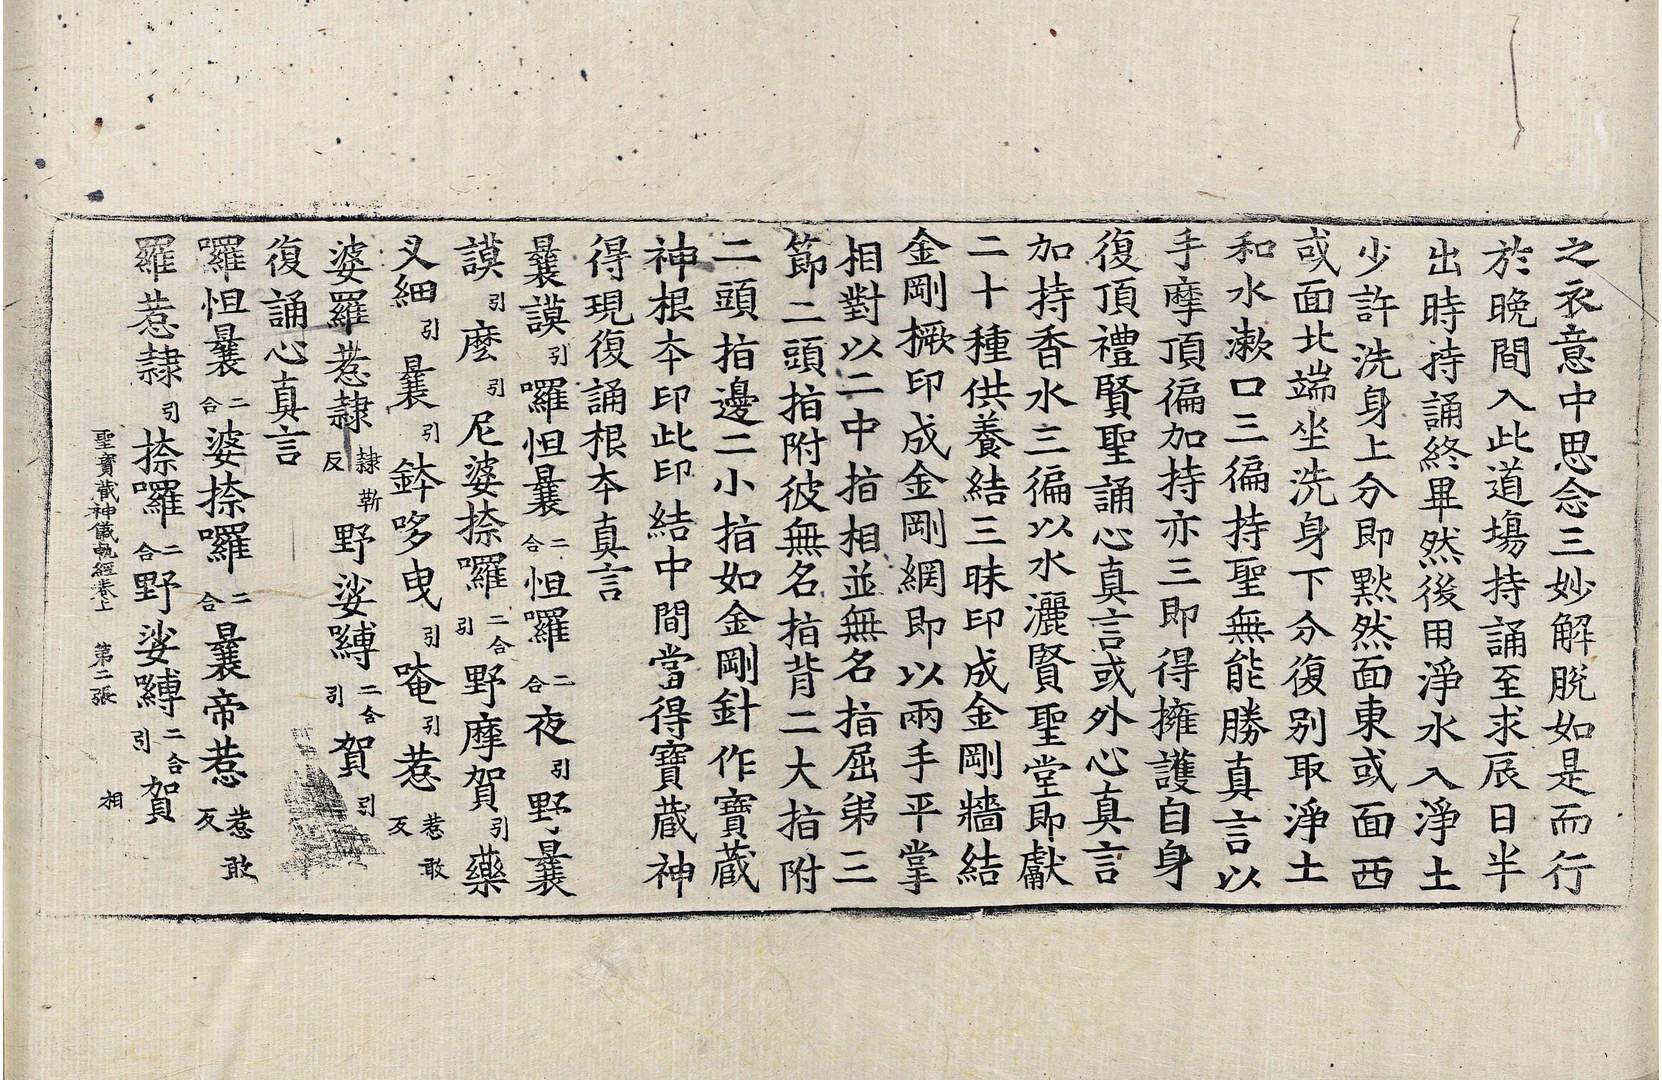 之衣意中思念三妙解脫如是而行
於晚間入此道場持誦至求辰日半
出時持誦終畢然後用淨水入淨土
少許洗身上分即默然面東或面西
或面北端坐洗身下分復別取淨土
和水漱口三徧持聖無能勝真言以
手摩頂徧加持亦三即得擁護自身
復頂禮賢聖誦心真言或外心真言
加持香水三徧以水灑賢聖堂即獻
二十種供養結三昧印成金剛牆結
金剛橛印成金剛網即以兩手平掌
相對以二中指相並無名指屈弟三
節二頭指附彼無名指背二大指附
二頭指邊二小指如金剛針作寶藏
神根本印此印結中間當得寶藏神
得現復誦根本真言
曩謨引囉怛曩二合怛囉二合夜引野曩
謨引麼引尼婆捺囉二合引野摩賀引藥
叉細引曩引鉢哆曳引唵引惹惹敢反
婆羅惹隷隷靳反野娑嚩二合引賀引
復誦心真言
囉怛曩二合婆捺囉二合曩帝惹惹敢反
羅惹隷引捺囉二合野娑嚩二合引賀
聖寶藏神儀軌經卷上 第二張 相